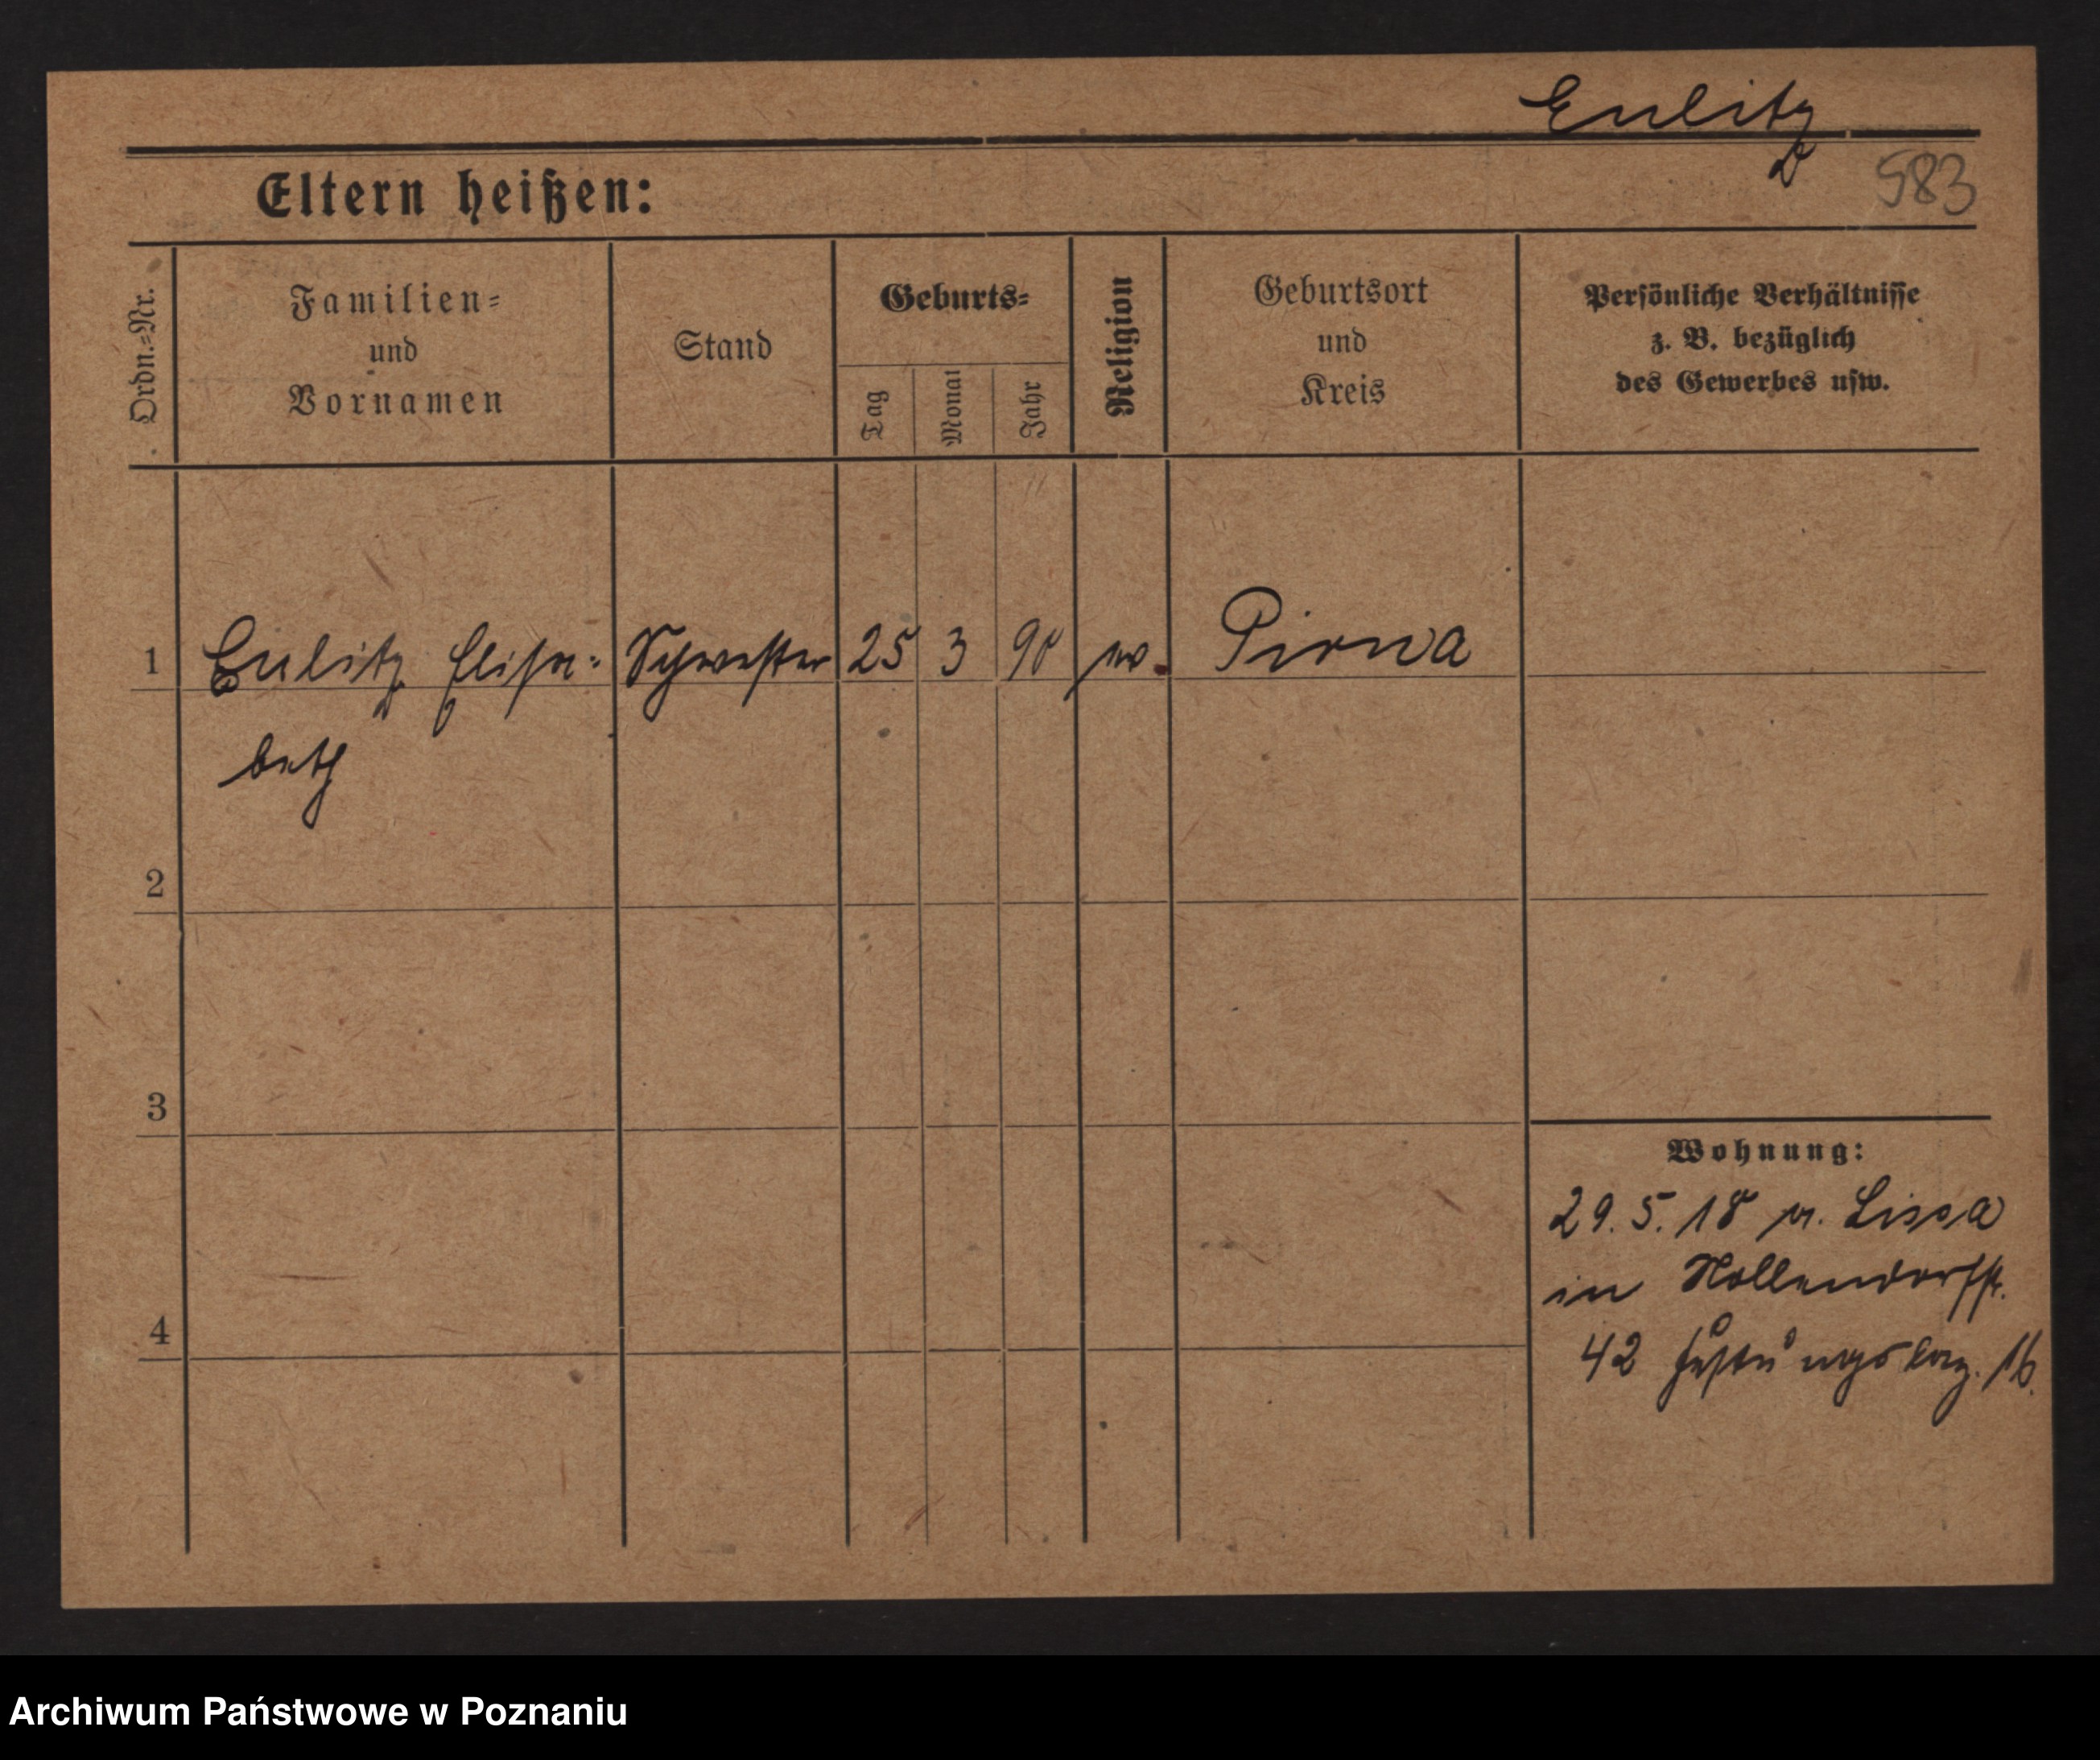 Eulitz
583
Eltern heißen:
Ordn.-Nr.
Familien-
und
Vornamen
Stand
Geburts-
Tag
Monat
Jahr
Religion
Geburtsort
und
Kreis
Persönliche Verhältnisse
z. B. bezüglich
des Gewerbes usw.
1 Eulitz Elisa- Schwester 25 3 90 Pirna
beth
2
3
4
Wohnung:
29.5.18 v. Lissa
in Nollendorfstr.
42 Festungslaz.
Archiwum Państwowe w Poznaniu